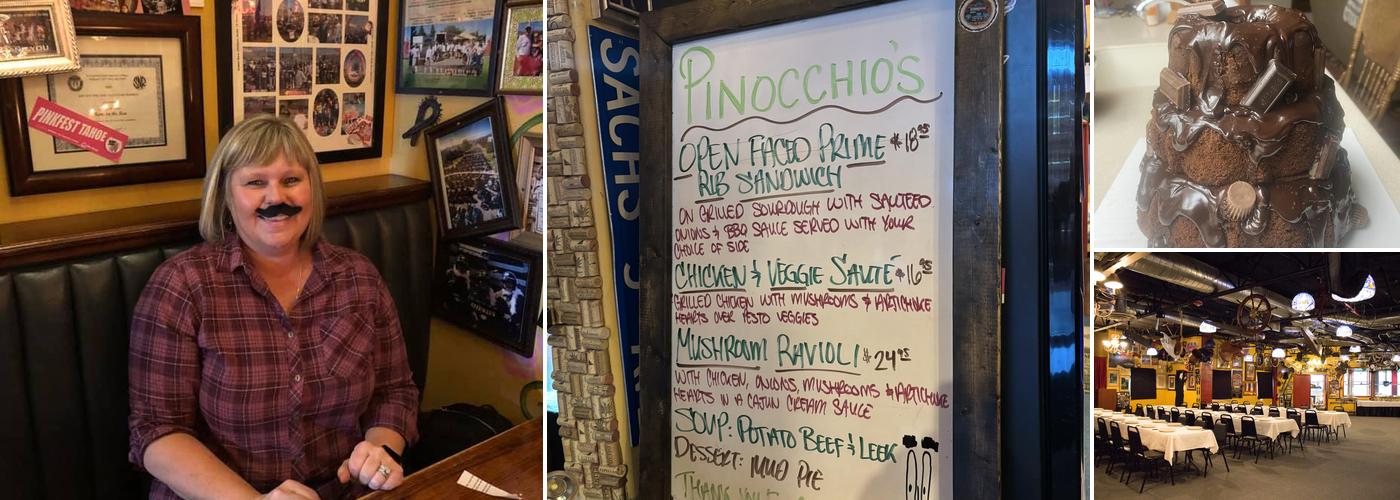 PINKFEST TAHOE
SACHS
PINOCCHIO'S
OPEN FACED PRIME $18.95
RIB SANDWICH
ON GRILLED SOURDOUGH WITH SAUTEED
ONIONS & BBQ SAUCE SERVED WITH YOUR
CHOICE OF SIDE
CHICKEN & VEGGIE SAUTÉ $16.95
GRILLED CHICKEN WITH MUSHROOMS & ARTICHOKE
HEARTS OVER PESTO VEGGIES
MUSHROOM RAVIOLI $24.95
WITH CHICKEN, ONIONS, MUSHROOMS & ARTICHOKE
HEARTS IN A CAJUN CREAM SAUCE
SOUP: POTATO BEEF & LEEK
DESSERT: MUD PIE